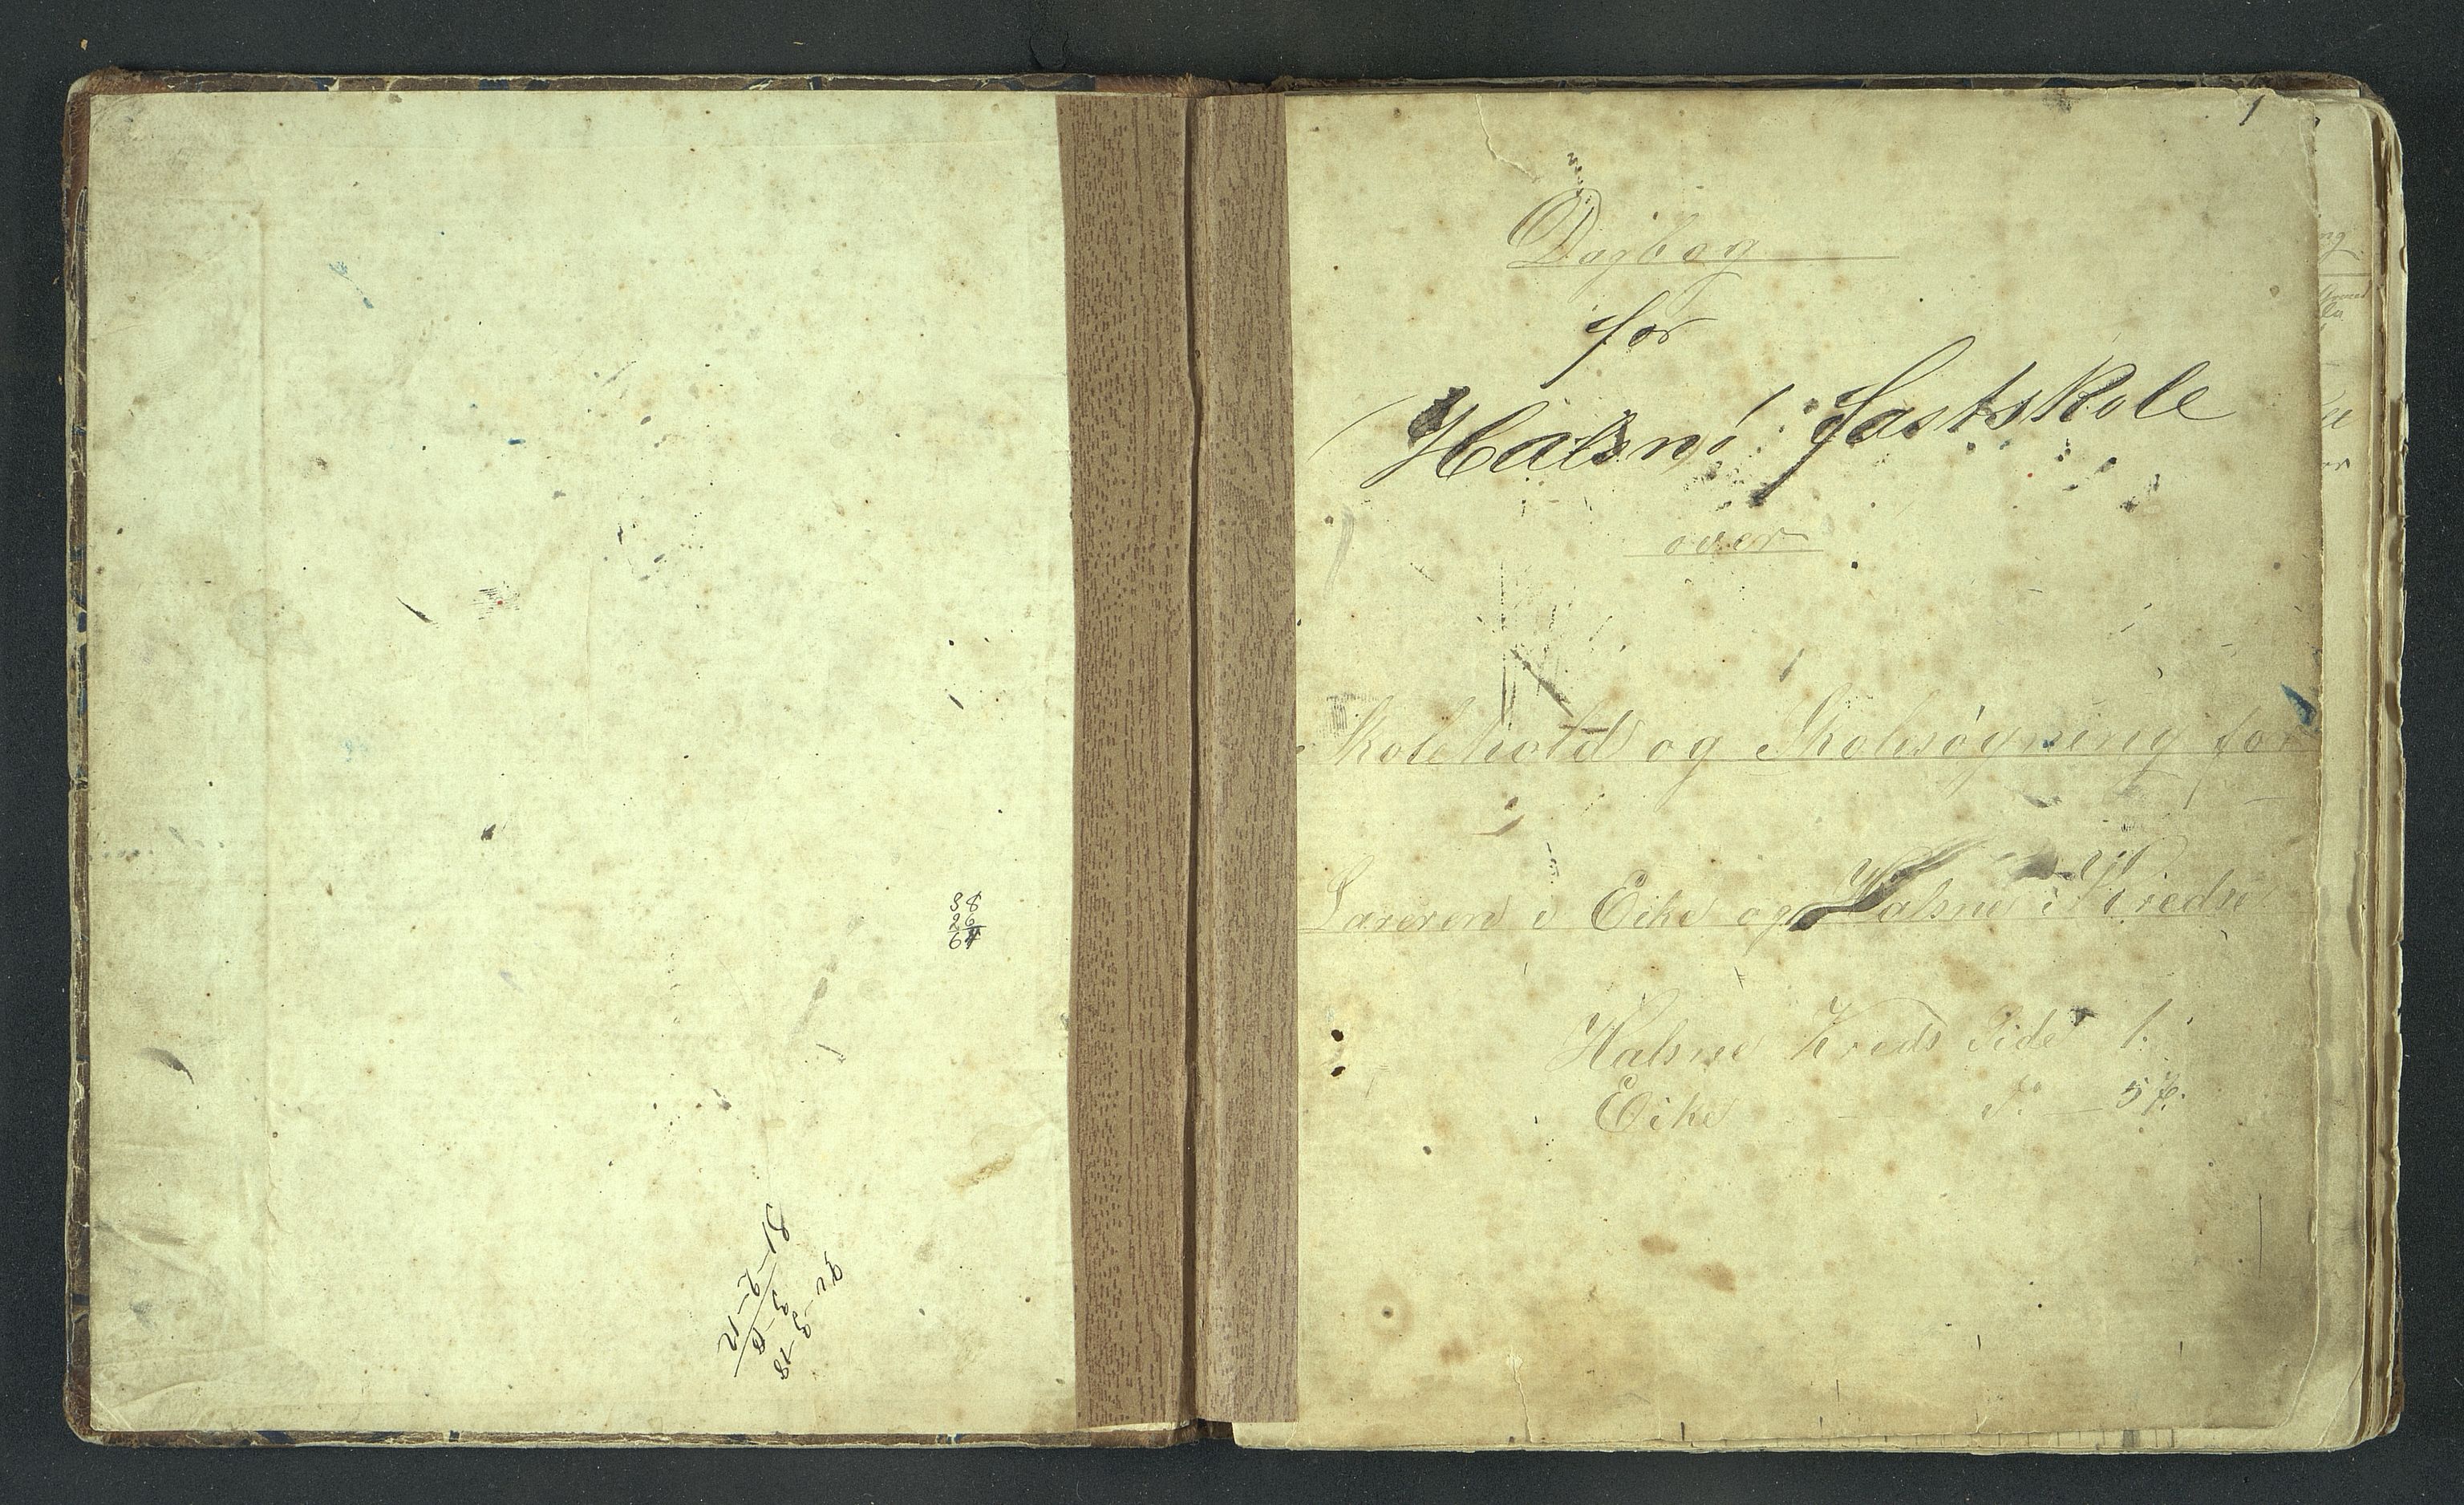 38
26
64
1
Dagbog
for
Halsnø fastskole
over
Skolehold og Skolesøgning for
Læreren i Eike og Halsne Kredse
Halsne Kreds Side 1.
Eike — d° — 57.